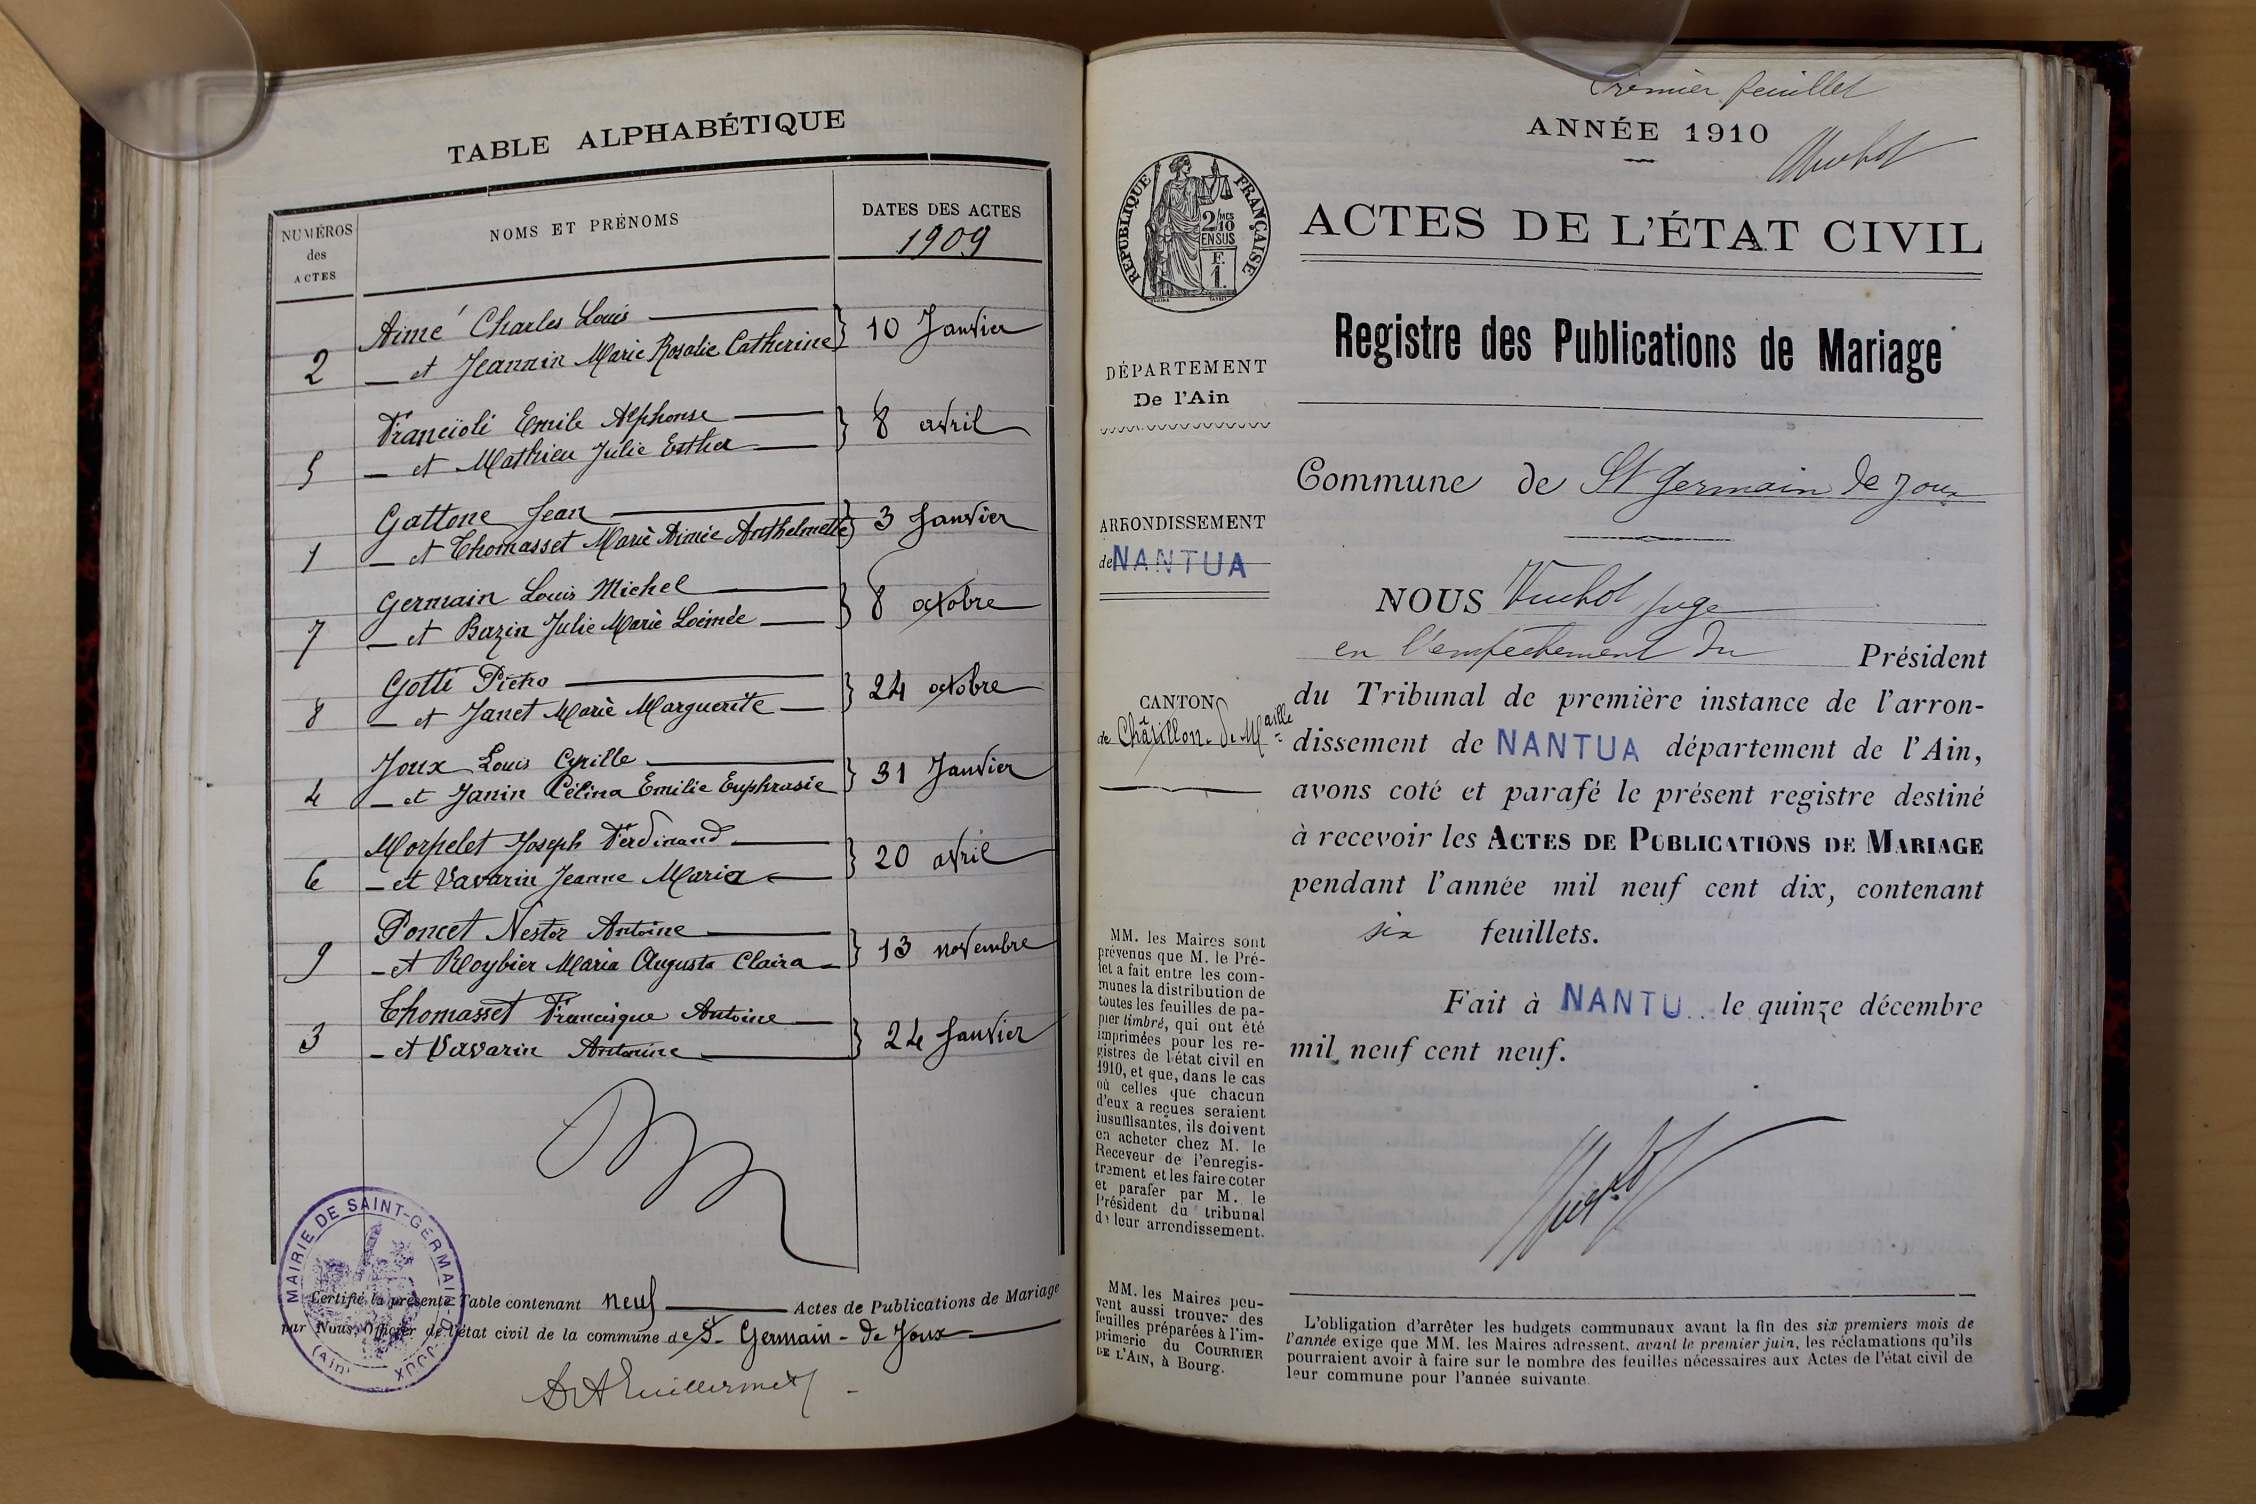 TABLE ALPHABÉTIQUE
NUMÉROS
des
ACTES
NOMS ET PRÉNOMS
DATES DES ACTES
1909
Aimé Charles Louis
2 et Jeannin Marie Rosalie Catherine } 10 Janvier
Francioli Emile Alphonse
5 et Mathieu Julie Esther } 8 avril
Gattone Jean
1 et Thomasset Marie Aimée Anthelmette } 3 Janvier
Germain Louis Michel
7 et Bazin Julie Marie } 8 octobre
Gotti Pietro
8 et Janet Marie Marguerite } 24 octobre
Joux Louis Cyrille
4 et Janin Célina Emilie Euphrasie } 31 Janvier
Morpelet Joseph Ferdinand
6 et Vavarin Jeanne Maria } 20 avril
Poncet Nestor Antoine
9 et Roybier Maria Augusta Claira } 13 novembre
Thomasset Francisque Antoine
3 et Vavarin Antonine } 24 Janvier
MAIRIE DE SAINT-GERMAIN-DE-JOUX
(Ain)
Certifié la présente Table contenant neuf Actes de Publications de Mariage
par Nous, Officier de l'état civil de la commune de St Germain-de Joux
Guillermet
Premier feuillet
ANNÉE 1910
Vuchot
RÉPUBLIQUE FRANÇAISE
2/10 MES
EN SUS
F.
1.
ACTES DE L'ÉTAT CIVIL
Registre des Publications de Mariage
DÉPARTEMENT
De l'Ain
Commune de St Germain de Joux
ARRONDISSEMENT
de NANTUA
NOUS Vuchot juge
en l'empêchement du Président
CANTON
de Châtillon-de-Maille
du Tribunal de première instance de l'arron-
dissement de NANTUA département de l'Ain,
avons coté et parafé le présent registre destiné
à recevoir les ACTES DE PUBLICATIONS DE MARIAGE
pendant l'année mil neuf cent dix, contenant
six feuillets.
Fait à NANTU le quinze décembre
mil neuf cent neuf.
MM. les Maires sont
prévenus que M. le Pré-
fet a fait entre les com-
munes la distribution de
toutes les feuilles de pa-
pier timbré, qui ont été
imprimées pour les re-
gistres de l'état civil en
1910, et que, dans le cas
où celles que chacun
d'eux a reçues seraient
insuffisantes, ils doivent
en acheter chez M. le
Receveur de l'enregis-
trement et les faire coter
et parafer par M. le
Président du tribunal
de leur arrondissement.
MM. les Maires peu-
vent aussi trouver des
feuilles préparées à l'im-
primerie du COURRIER
DE L'AIN, à Bourg.
L'obligation d'arrêter les budgets communaux avant la fin des six premiers mois de
l'année exige que MM. les Maires adressent, avant le premier juin, les réclamations qu'ils
pourraient avoir à faire sur le nombre des feuilles nécessaires aux Actes de l'état civil de
leur commune pour l'année suivante.